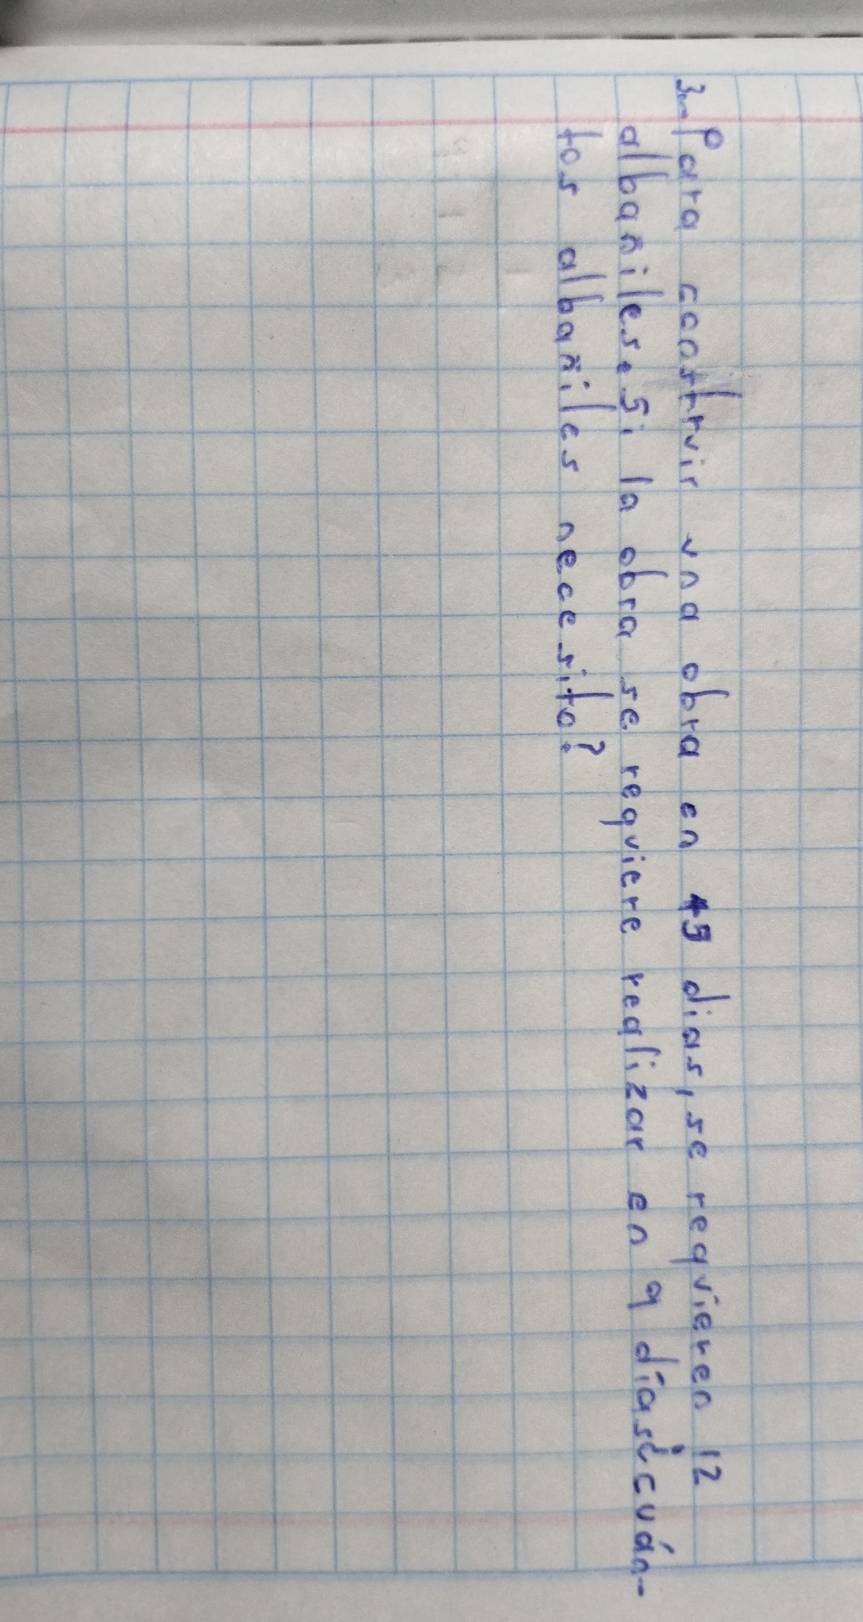 3.- Para construir una obra en 45 dias, se requieren 12
albañiles. Si la obra se requiere realizar en 9 días ¿cuán-
tos albañiles necesito?